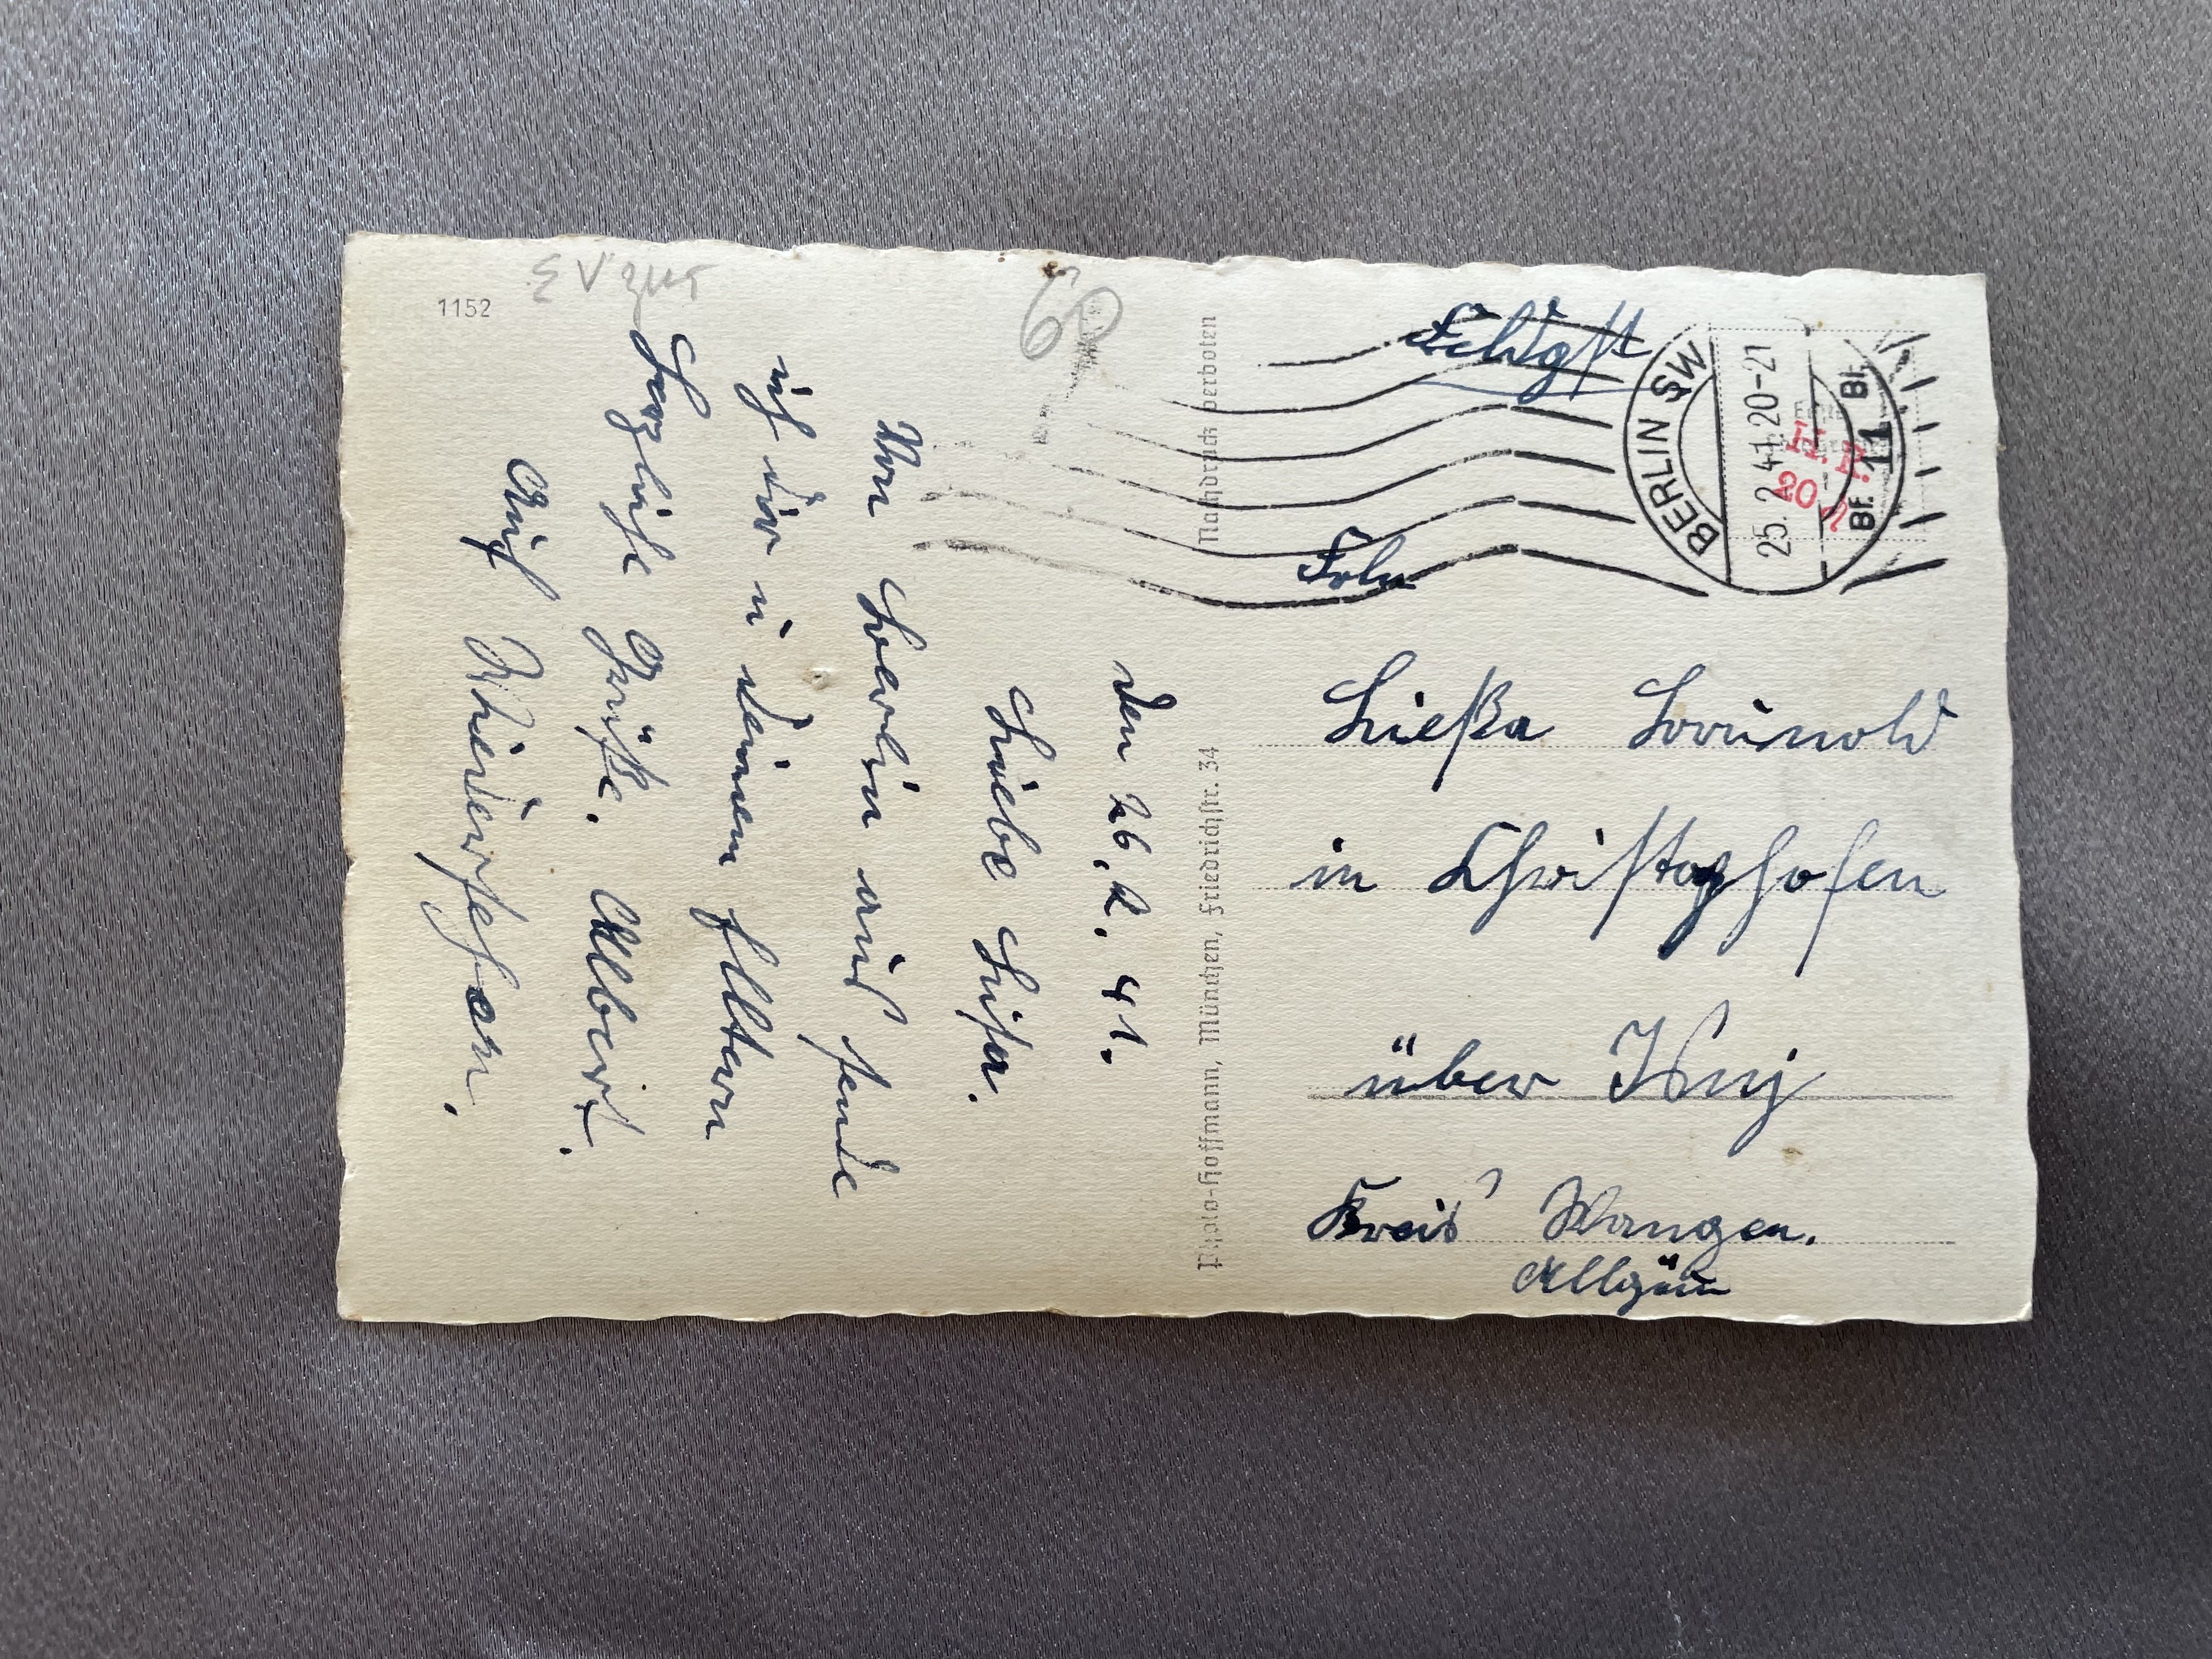 1152
den 26. 2. 41.
Liebe Lisa.
Von Berlin aus sende
ich dir u deinen Eltern
Herzliche Grüße. Albert.
Auf Wiedersehen.
Photo-Hoffmann, München, Friedrichstr. 34
Nachdruck verboten
Feldpost
BERLIN SW
25. 2 41. 20-21
Bf. 11 Bf.
Frln
in Christazhofen
über Isny
Kreis Wangen.
Allgäu